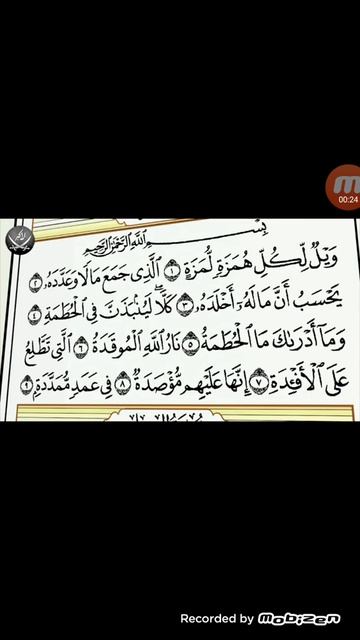 00:24
بِسْمِ اللَّهِ الرَّحْمَٰنِ الرَّحِيمِ
وَيْلٌ لِّكُلِّ هُمَزَةٍ لُّمَزَةٍ ١ الَّذِي جَمَعَ مَالًا وَعَدَّدَهُۥ ٢
يَحْسَبُ أَنَّ مَالَهُۥٓ أَخْلَدَهُۥ ٣ كَلَّا ۖ لَيُنۢبَذَنَّ فِي الْحُطَمَةِ ٤
وَمَآ أَدْرَىٰكَ مَا الْحُطَمَةُ ٥ نَارُ اللَّهِ الْمُوقَدَةُ ٦ الَّتِي تَطَّلِعُ
عَلَى الْأَفْـِٔدَةِ ٧ إِنَّهَا عَلَيْهِم مُّؤْصَدَةٌ ٨ فِي عَمَدٍ مُّمَدَّدَةٍۭ ٩
Recorded by Mobizen